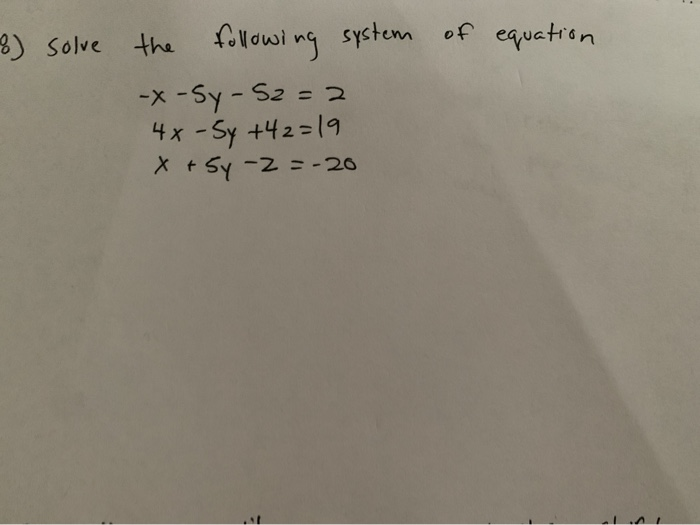 8) Solve the following system of equation
-x - 5y - 5z = 2
4x - 5y + 4z = 19
x + 5y - z = -20